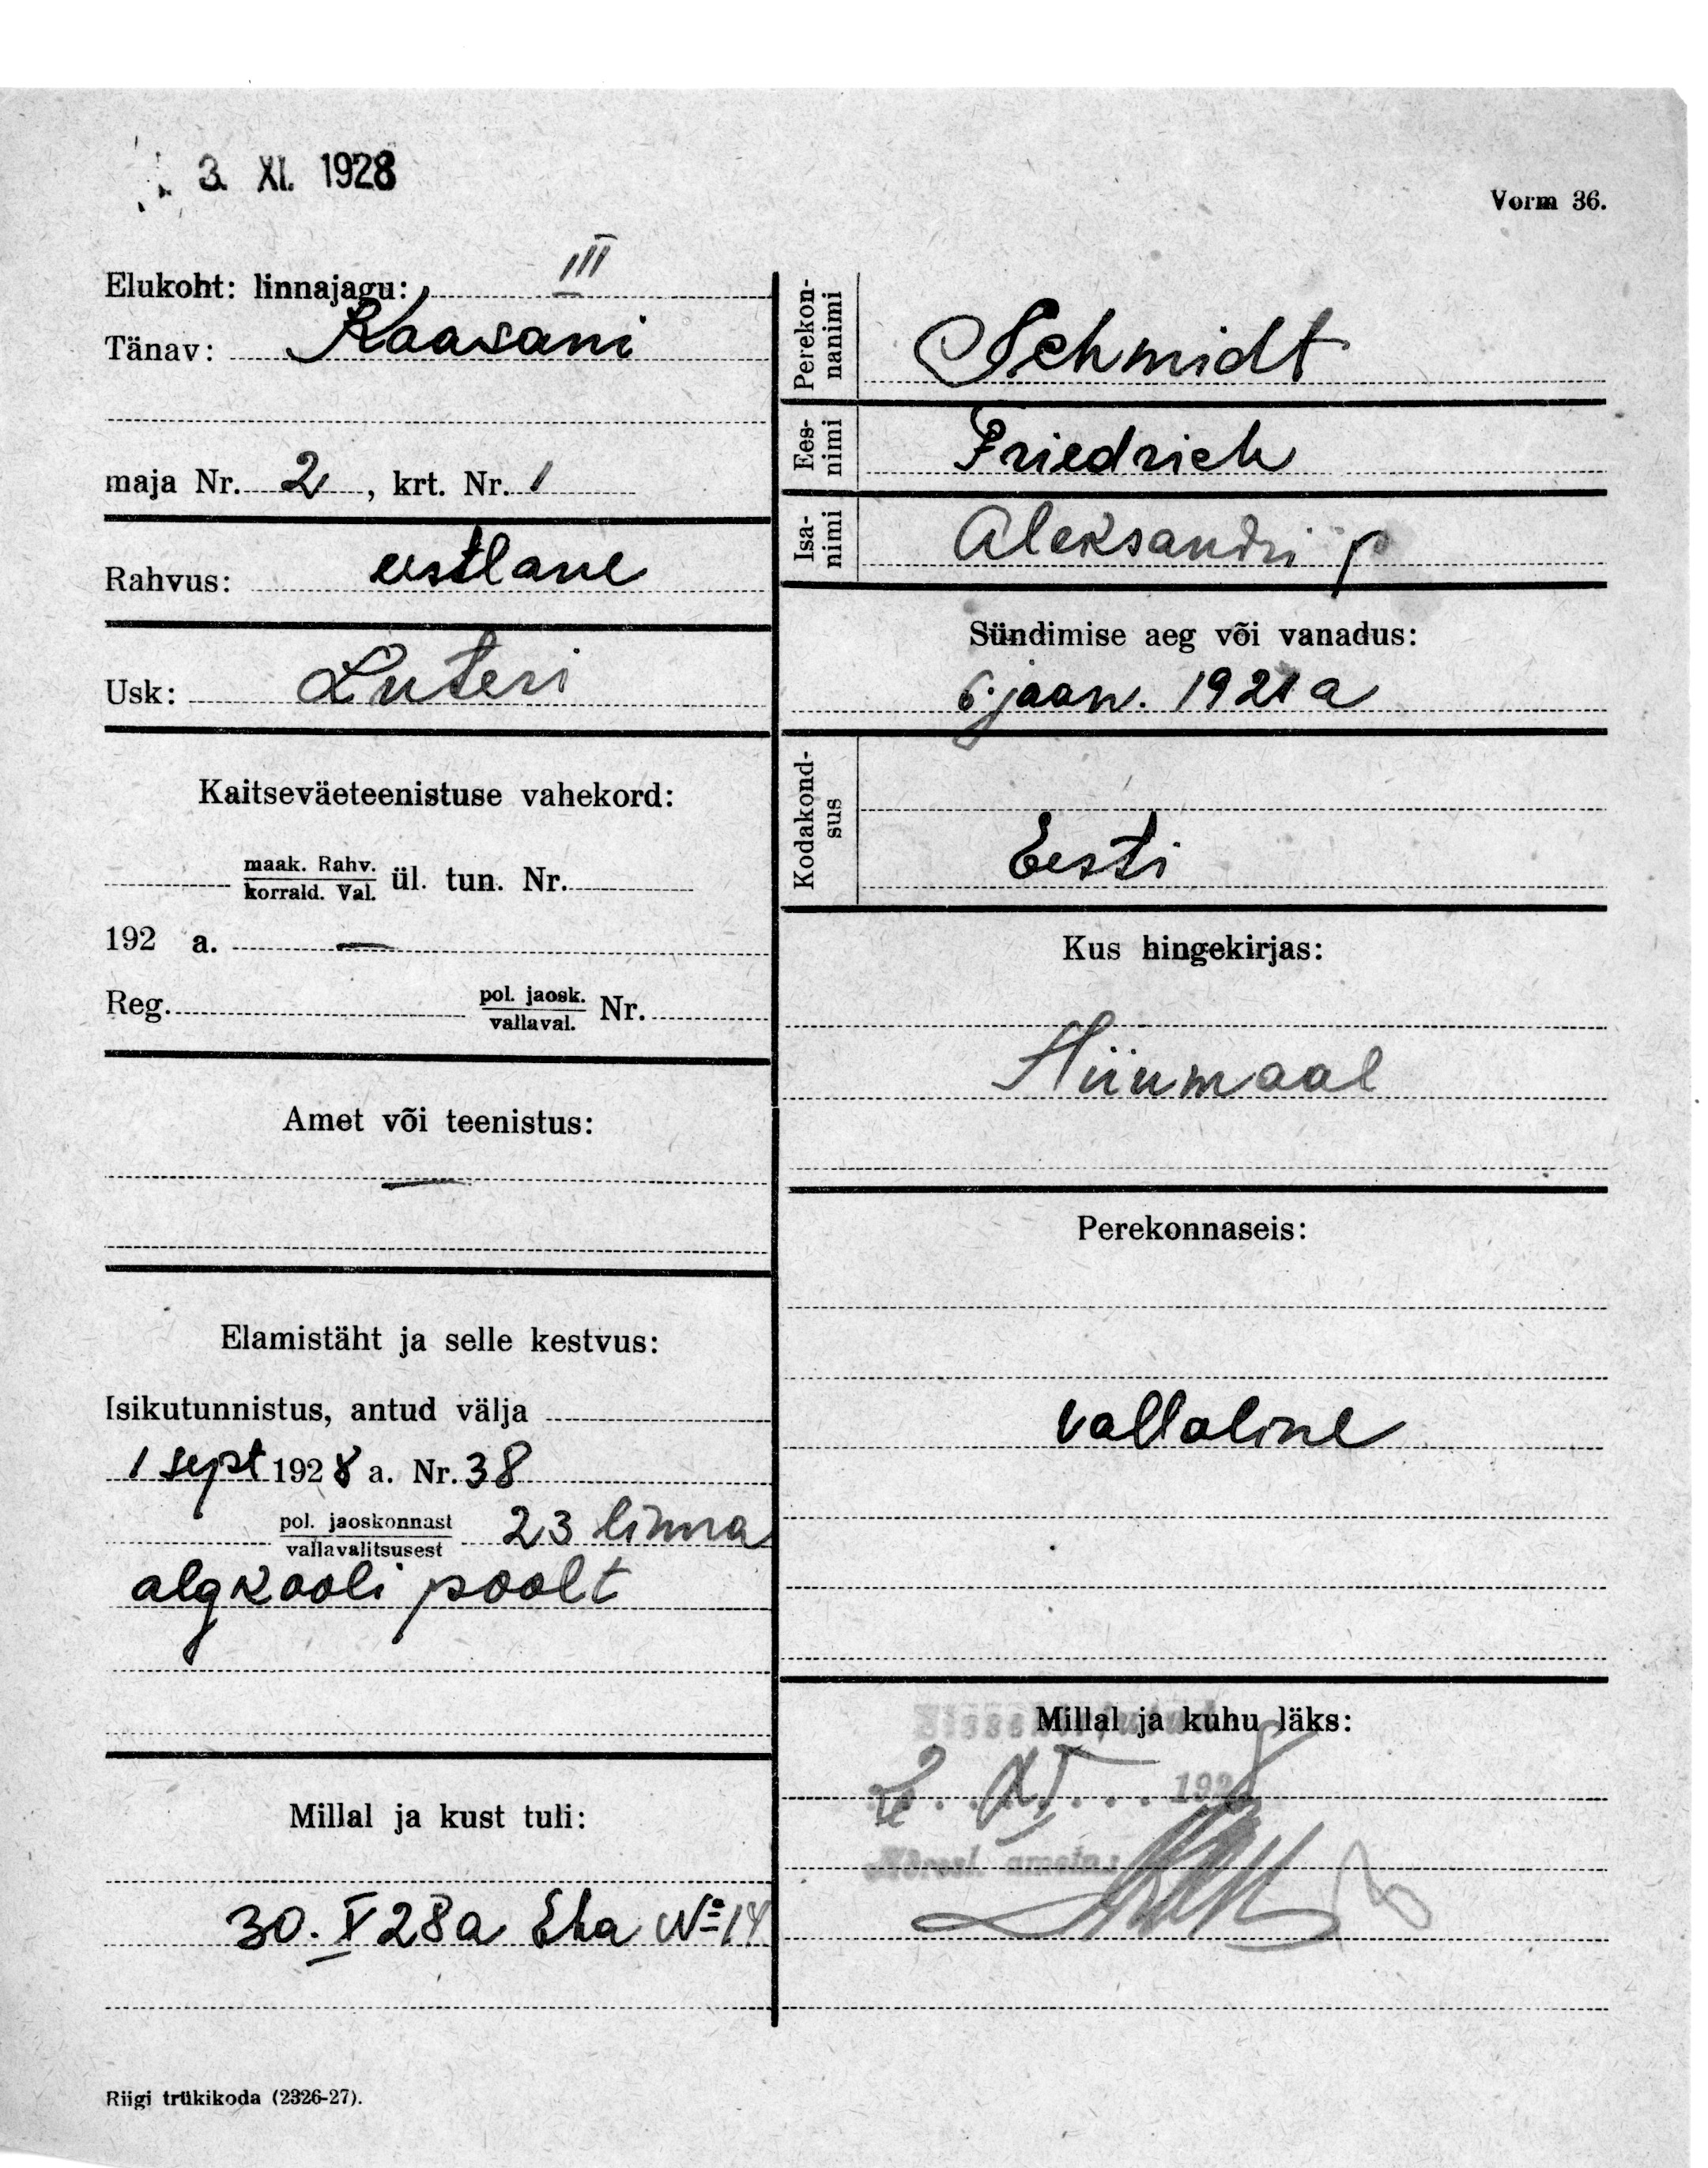 3. XI. 1928
Vorm 36.
Elukoht: linnajagu: III
Tänav: Kaasani
maja Nr. 2, krt. Nr. 1
Rahvus: eestlane
Usk: Luteri
Kaitseväeteenistuse vahekord:
maak. Rahv.
korrald. Val. ül. tun. Nr.
192 a. —
Reg. pol. jaosk.
vallaval. Nr.
Amet või teenistus:
—
Elamistäht ja selle kestvus:
Isikutunnistus, antud välja
1 sept 1928 a. Nr. 38
pol. jaoskonnast
vallavalitsusest 23 linna
algkooli poolt
Millal ja kust tuli:
30. X 28 a Eha № 14
Riigi trükikoda (2326-27).
Perekon-
nanimi Schmidt
Ees-
nimi Friedrich
Isa-
nimi Aleksandri p
Sündimise aeg või vanadus:
6. jaan. 1921 a
Kodakond-
sus Eesti
Kus hingekirjas:
Hiiumaal
Perekonnaseis:
vallaline
Millal ja kuhu läks:
2. XI 1928